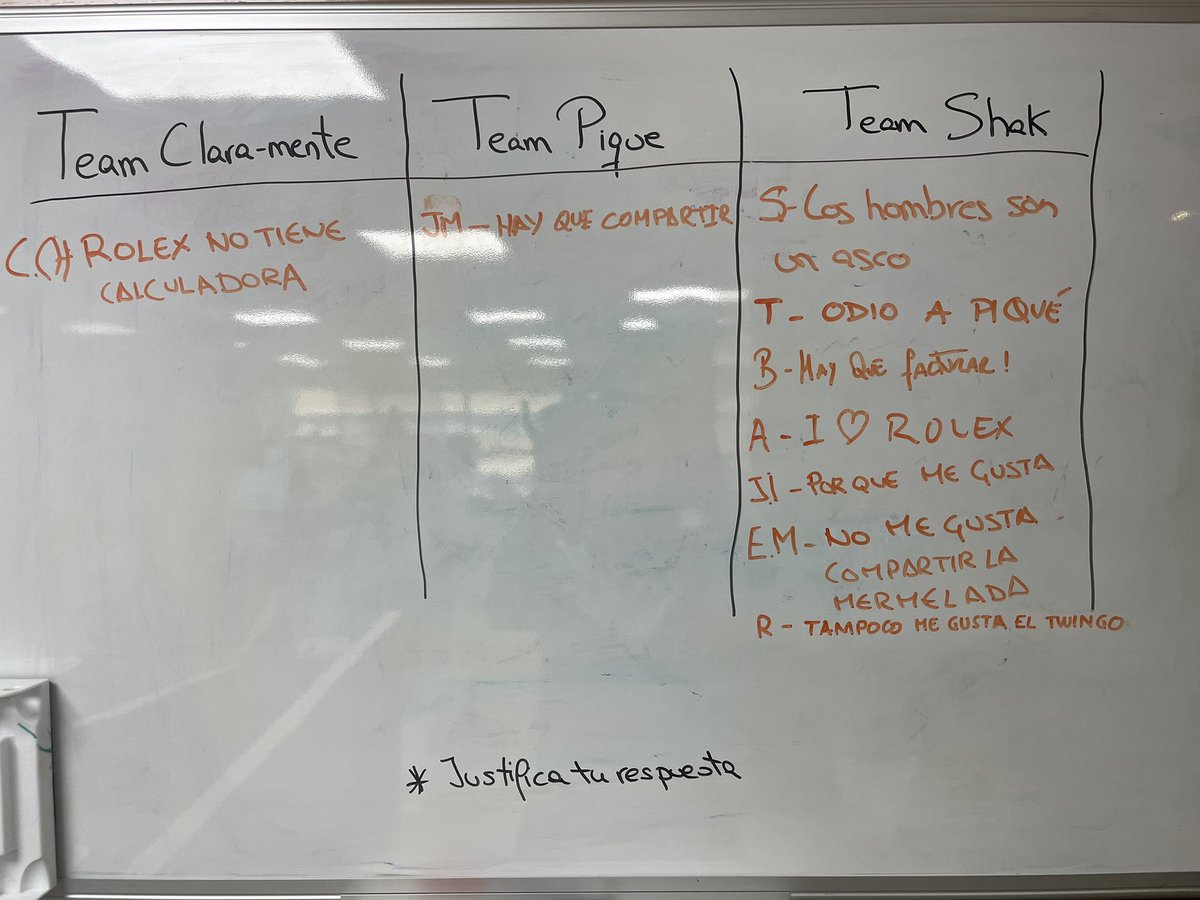 Team Clara-mente
ROLEX NO TIENE
CALCULADORA
Team Pique
JM - HAY QUE COMPARTIR
Team Shak
S- Los hombres son
un asco
T - ODIO A PIQUÉ
B - HAY QUE FACTURAR!
A - I ♡ ROLEX
- PORQUE ME GUSTA
E.M - NO ME GUSTA
COMPARTIR LA
MERMELADA
R - TAMPOCO ME GUSTA EL TWINGO
* Justifica tu respuesta